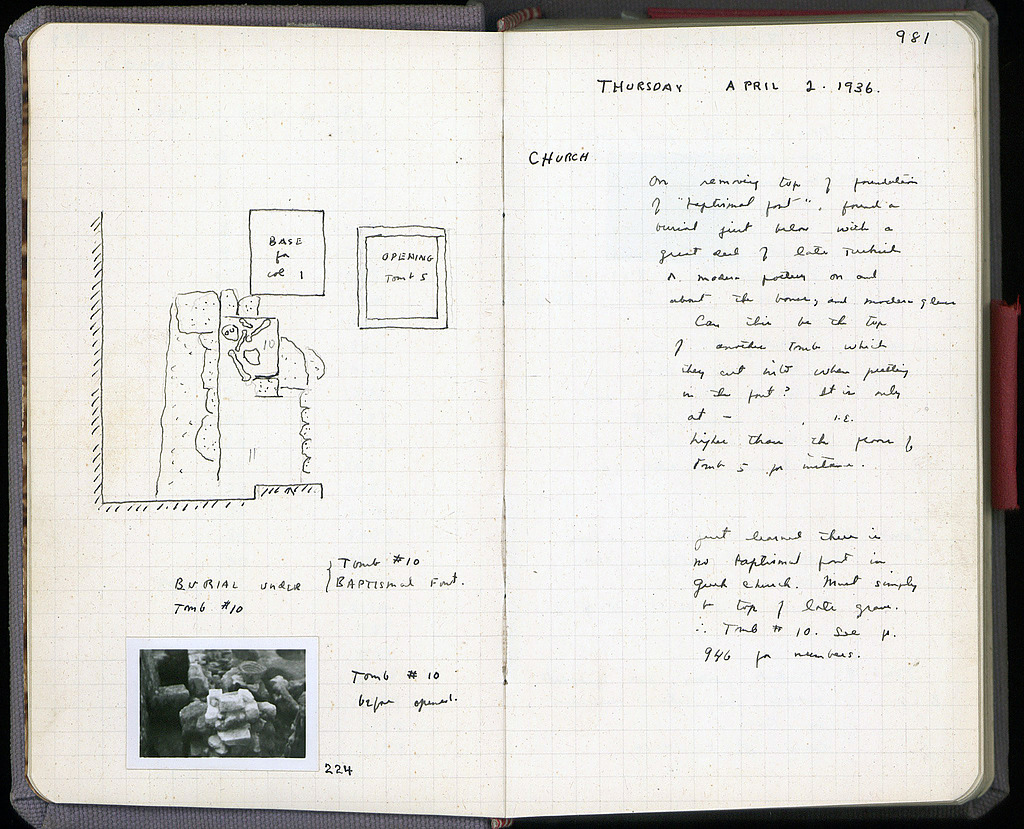 BASE
for
col 1
OPENING
Tomb 5
10
11
BURIAL UNDER { Tomb #10
BAPTISMAL FONT.
Tomb #10
Tomb #10
before opened.
224
981
THURSDAY APRIL 2. 1936.
CHURCH
On removing top of foundation
of "baptismal font", found a
burial just below with a
great deal of late Turkish
or modern pottery on and
about the bones, and modern glass
Can this be the top
of another tomb which
they cut into when putting
in the font? It is only
at – , i.e.
higher than the floor of
Tomb 5 for instance.
Just learned there is
no baptismal font in
Greek church. Must simply
be top of late grave.
∴ Tomb # 10. See p.
946 for numbers.